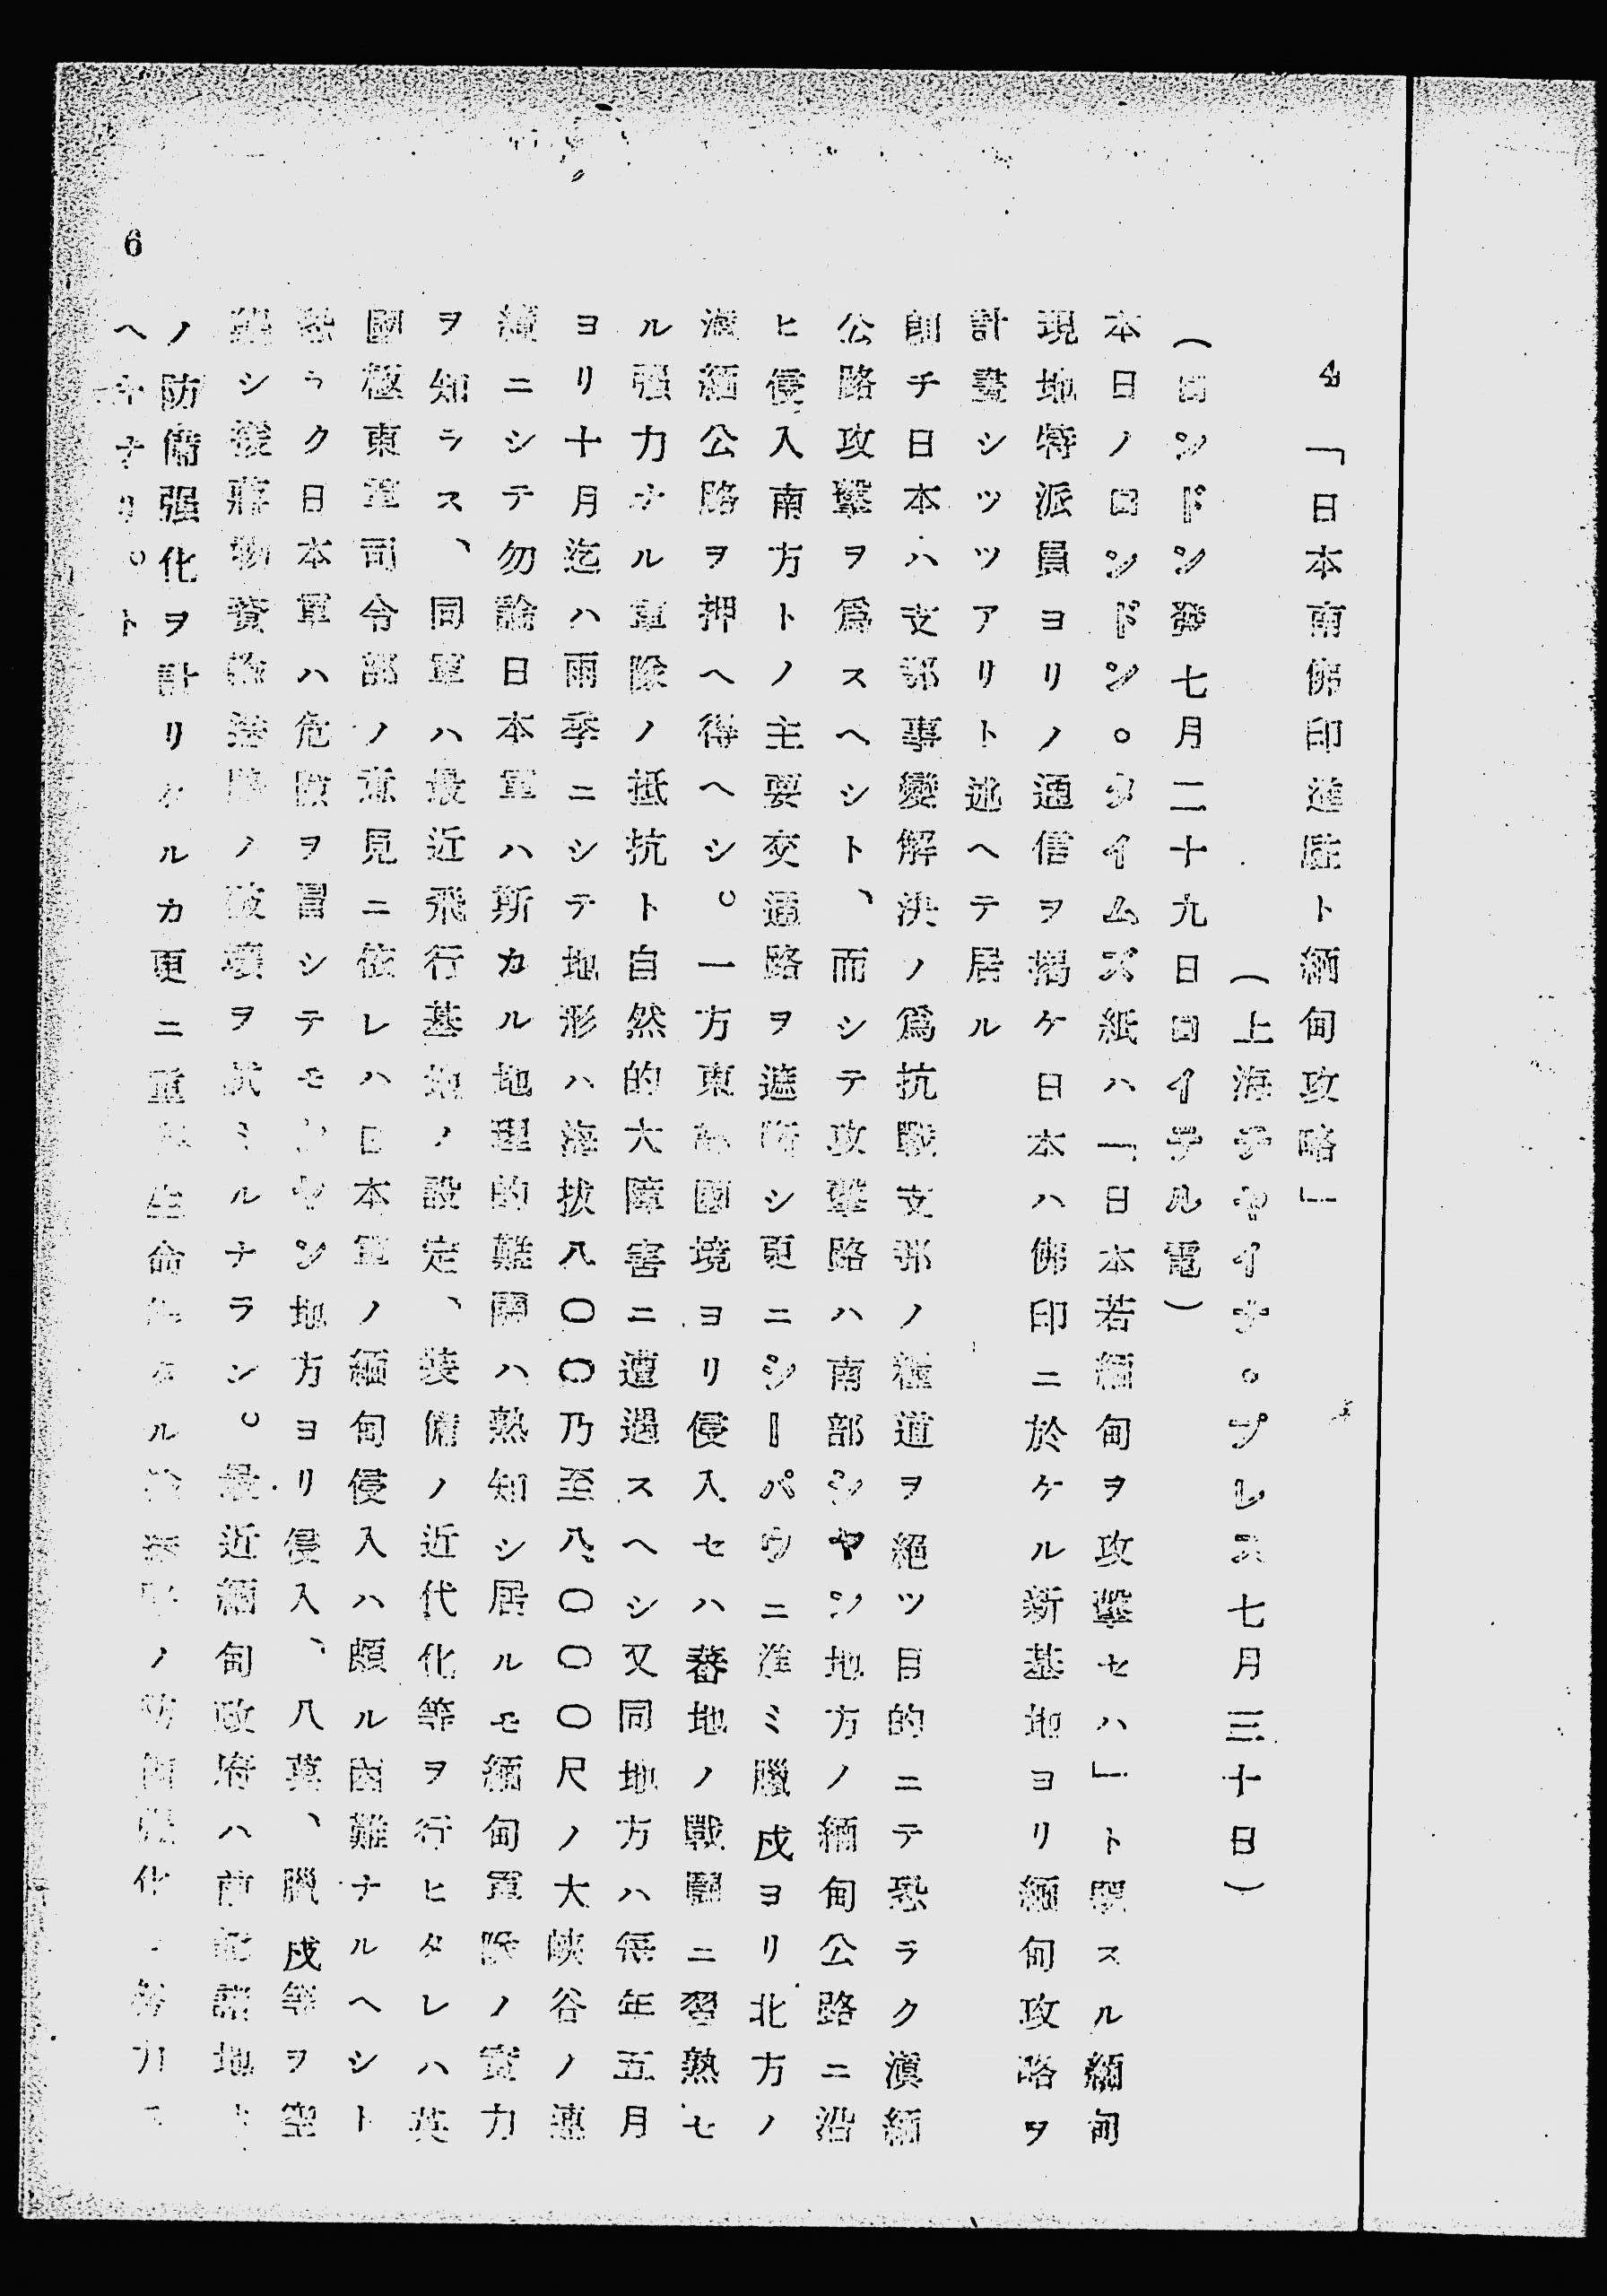 4 「日本南佛印進駐ト緬甸攻略」
(上海チヤイナ。プレス七月三十日)
(ロンドン發七月二十九日ロイテル電)
本日ノロンドン。タイムズ紙ハ「日本若緬甸ヲ攻擊セハ」ト題スル緬甸
現地特派員ヨリノ通信ヲ揭ケ日本ハ佛印ニ於ケル新基地ヨリ緬甸攻略ヲ
計畫シツツアリト述ヘテ居ル
卽チ日本ハ支那事變解決ノ爲抗戰支那ノ糧道ヲ絕ツ目的ニテ恐ラク滇緬
公路攻擊ヲ爲スヘシト、而シテ攻擊路ハ南部シヤン地方ノ緬甸公路ニ沿
ヒ侵入南方トノ主要交通路ヲ遮斷シ更ニシーパウニ進ミ臘戍ヨリ北方ノ
滇緬公路ヲ押ヘ得ヘシ。一方東部國境ヨリ侵入セハ蕃地ノ戰鬪ニ習熟セ
ル强力ナル軍隊ノ抵抗ト自然的大障害ニ遭遇スヘシ又同地方ハ每年五月
ヨリ十月迄ハ雨季ニシテ地形ハ海拔八〇〇乃至八、〇〇〇尺ノ大峽谷ノ連
續ニシテ勿論日本軍ハ斯カル地理的難關ハ熟知シ居ルモ緬甸軍隊ノ實力
ヲ知ラス、同軍ハ最近飛行基地ノ設定、裝備ノ近代化等ヲ行ヒタレハ英
國極東軍司令部ノ意見ニ依レハ日本軍ノ緬甸侵入ハ頗ル困難ナルヘシト
恐ラク日本軍ハ危險ヲ冒シテモシヤン地方ヨリ侵入、八莫、臘戍等ヲ空
襲シ援蔣物資輸送路ノ破壞ヲ試ミルナラン。最近緬甸政府ハ前記諸地
ノ防備强化ヲ計リタルカ更ニ重 生命 ル ノ防備强化 努力
ヘキナリ。ト
6